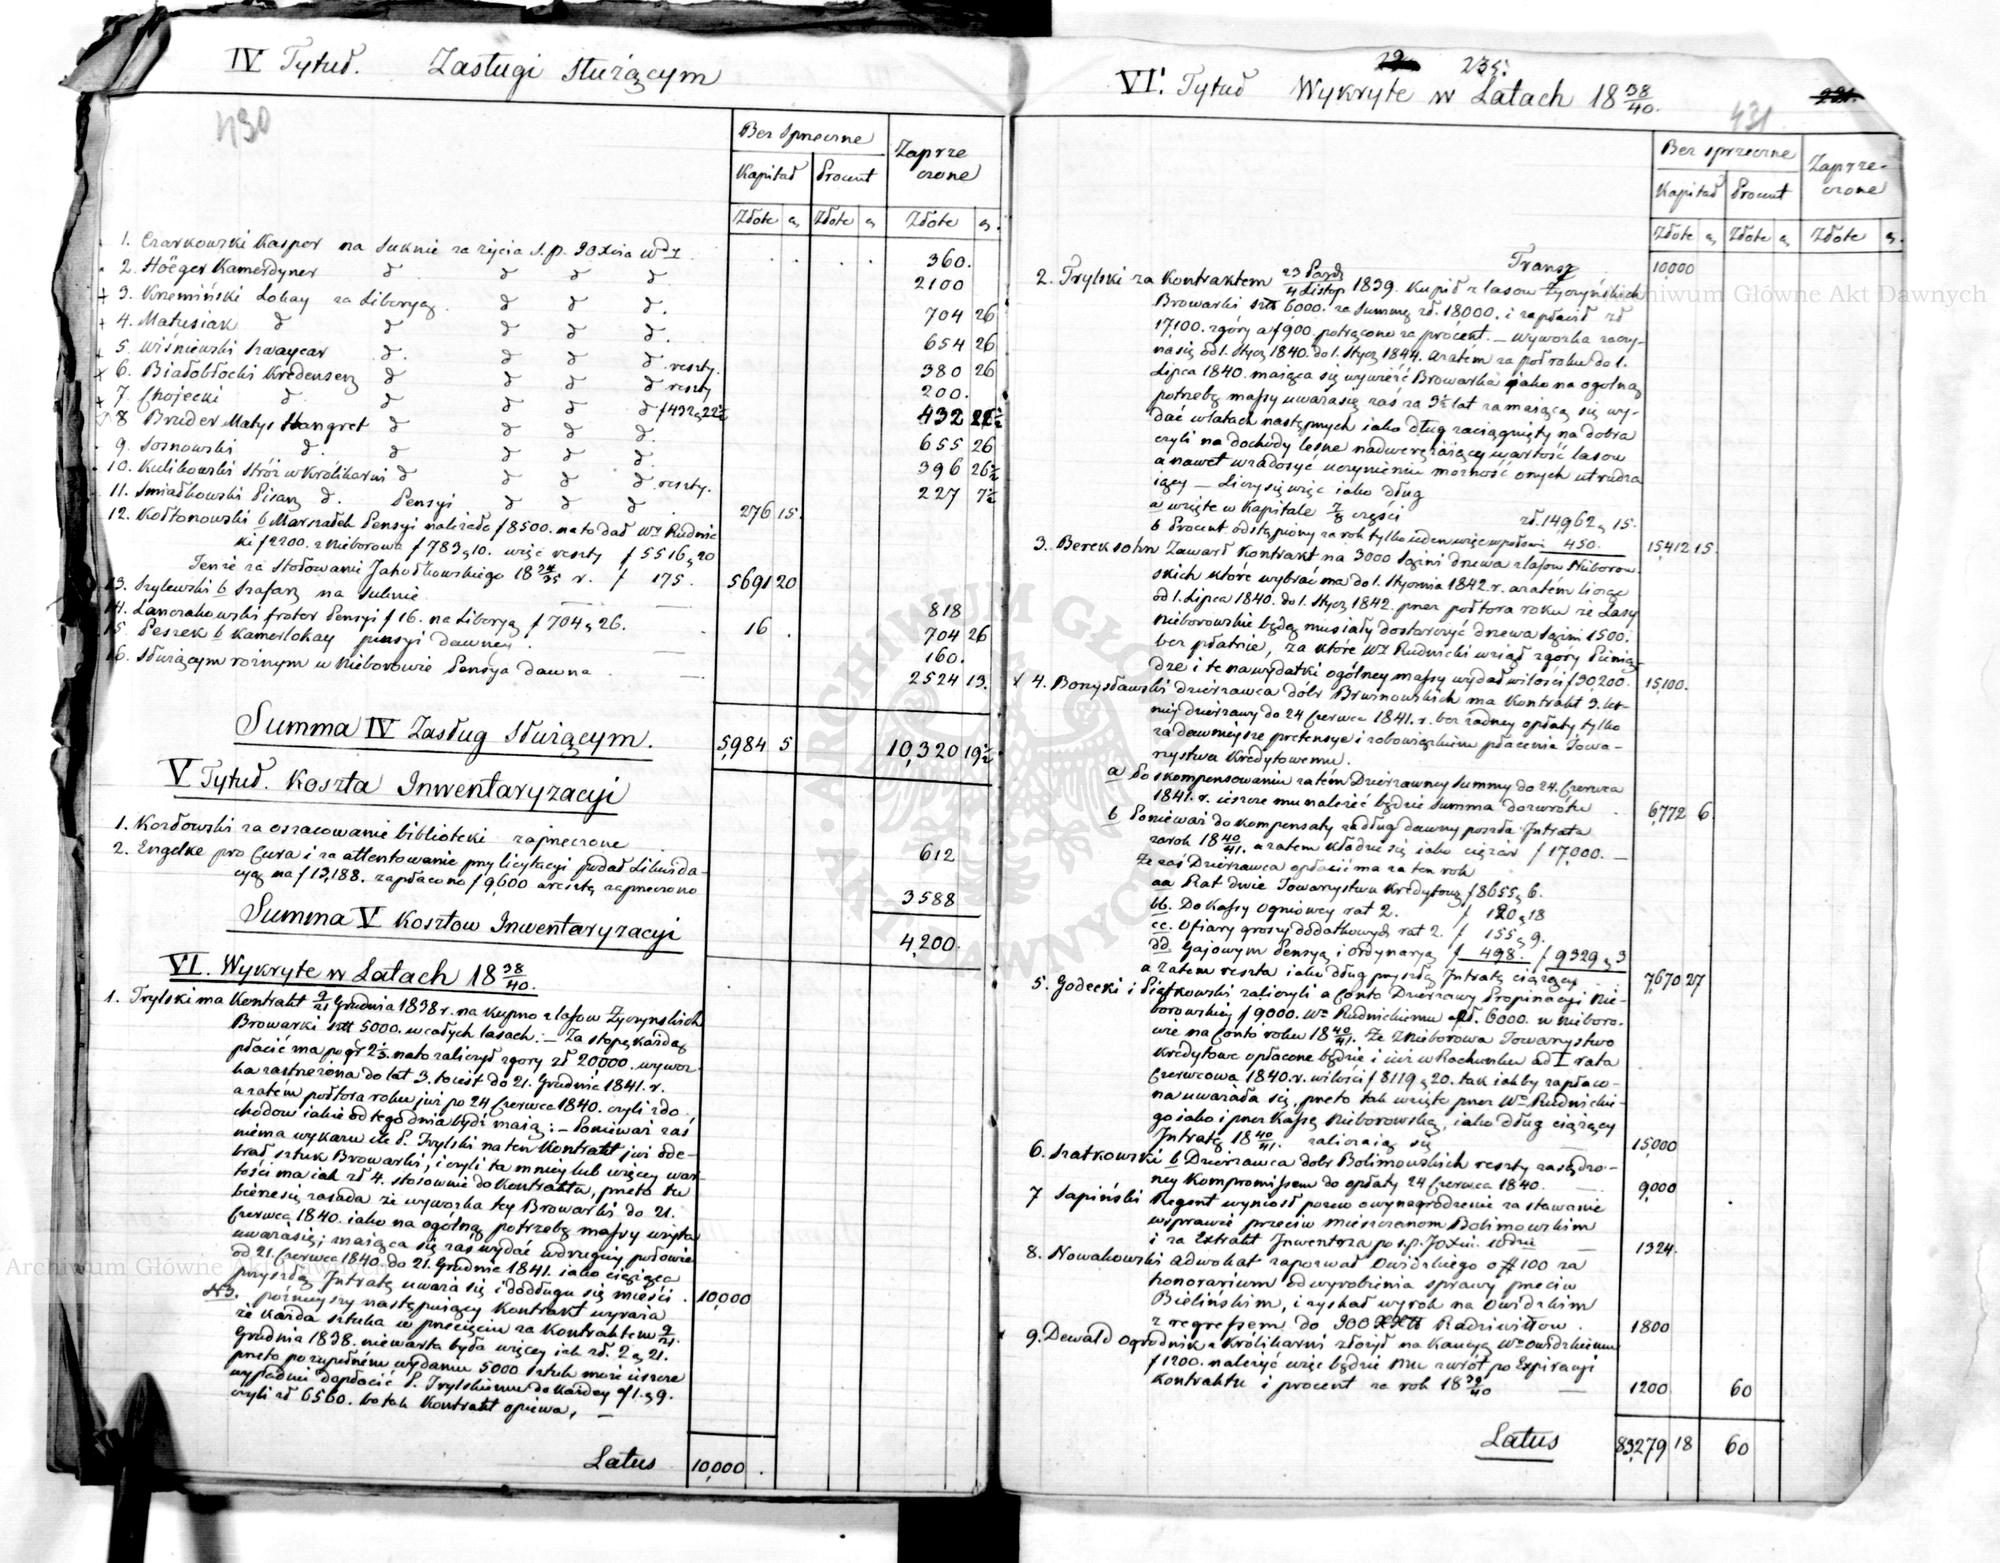 IV Tytuł. Zasługi służącym
430
Bez sprzeczne
Zaprze
czone
Kapitał Procent
Złote g Złote g Złote g.
1. Czarkowski Kasper na suknie za życia S.p. JOXcia WdZ 360.
2. Höeger Kamerdyner d d d d 2100
3. Krzemiński Lokay za Liberyą d d d. 704 26
4. Matusiak d d d d. 654 26
5. Wiśniewski szwaycar d. d d d reszty. 380 26
6. Białobłocki Kredenserz d d d d reszty 200.
7. Chojecki d. d d d f 432 g 22½ 432 22½
8 Bruder Matys Stangret d d d. 655 26
9. Sosnowski d. d. d d. 396 26½
10. Kulikowski Stróż w Królikarni d d d reszty. 227 7½
11. Smiałkowski Pisarz d. Pensyi d d d 276 15.
12. Kołłonowski b Marszałek Pensyi należało f 8500. na to dał Wy Rudnic
ki f 2200. z Nieborowa f 783 g 10. więc reszty f 5516 g 20
Tenże za stołowanie Jabołkowskiego 18 34/35 r. f 175. 5691 20
13. Szylewski b Szafarz na suknie 818
14. Lanczakowski froter Pensyi f 16. na Liberyą f 704 g 26. 16 704 26
15. Peszek b Kamerlokay pensyi dawney 160.
16. Służącym rożnym w Nieborowie Pensya dawna 2524 13.
Summa IV Zasług służącym. 5,984 5 10,320 19½
V Tytuł. Koszta Inwentaryzacyi
1. Kozłowski za oszacowanie biblioteki zaprzeczone 612
2. Engelke pro Cura i za attentowanie przy licytacyi podał Likwida-
cyą na f 13,188. zapłacono f 9,600 a resztę zaprzeczono 3588
Summa V Kosztow Inwentaryzacyi 4,200.
VI. Wykryte w Latach 18 38/40.
1. Trylski ma Kontrakt 9/21 Grudnia 1838 r. na kupno z lasow Życzynskich
Browarki sztt 5000. w całych lasach: – Za stopę każdą
płacić ma po gr 2½. na to zaliczył zgory zł 20,000. wywoz-
ka zastrzeżona do lat 3. to iest do 21. Grudnia 1841. r.
a zatem połtora roku już po 24 Czerwca 1840. czyli z do
chodow iakie od tego dnia bydź maią: – Ponieważ zaś
niema wykazu ile P. Trylski na ten Kontrakt już ode-
brał sztuk Browarki, i czyli ta mniey lub więcey war-
tości ma iak zł 4. stosownie do Kontraktu, przeto tu
bierze się zasada że wywozka tey Browarki do 21.
Czerwca 1840. iako na ogólną potrzebę massy wzięta
uważa się; maiąca się zaś wydać w drugiey połowie
od 21. Czerwca 1840. do 21. Grudnia 1841. iako ciążąca
przyszłą Intratę uważa się i do długu się mieści. 10,000
N3. poźnieyszy następuiący Kontrakt wyraża
że każda sztuka w przecięciu za Kontraktem 9/21.
Grudnia 1838. niewarta była więcey iak zł. 2 g 21.
przeto po zupełnem wydaniu 5000 sztuk może ieszcze
wypadnie dopłacić P. Trylskiemu do każdey zł 1. g 9.
czyli zł 6560. bo tak Kontrakt opiewa, –
Latus 10,000
235.
VI. Tytuł Wykryte w Latach 18 38/40.
431
Bez sprzeczne
Zaprze-
czone
Kapitał Procent
Złote g Złote g Złote g.
Transp 10,000
2. Trylski za Kontraktem 23 Pazdz/4 Listop 1839. kupił z lasow Życzyńskich
Browarki sztt 6000. za Summę zł. 18000. i zapłacił zł
17,100. zgóry a f 900. potrącono za prócent. – Wywozka zaczy-
na się od 1. Stycz 1840. do 1. Stycz 1844. a zatém za poł roku do 1.
Lipca 1840. maiąca się wywieźć Browarka iako na ogolną
potrzebę massy uważa się zaś za 3½ lat za maiącą się wy-
dać w latach następnych iako dług zaciągnięty na dobra
czyli na dochody leśne nadwerężaiący wartość lasow
a nawet w zadosyć uczynieniu możność onych utrudza
iący – Liczy się więc iako dług
a wzięte w Kapitale 7/8 części zł. 14962 g 15.
b Procent odstąpiony za rok tylko ieden więc wpołowie 450. 15,412 15.
3. Bereksohn Zawarł Kontrakt na 3000 Sążni drzewa z lasow Nieborow-
skich które wybrać ma do 1. Stycznia 1842. r. a zatém licząc
od 1. Lipca 1840. do 1. Stycz 1842. przez połtora roku że Lasy
Nieborowskie będą musiały dostarczyć drzewa Sążni 1500.
bez płatnie, za które Wy Rudnicki wziął zgóry Pienią-
dze i te na wydatki ogólney massy wydał wilości f 30200. 15,100.
4. Borzysławski dzierżawca dóbr Brwinowskich ma Kontrakt 3. let-
niey dzierżawy do 24 Czerwca 1841. r. bez żadney opłaty, tylko
za dawnieysze pretensye i zobowiązkiem płacenia Towa-
rzystwa Kredytowemu.
a Po skompensowaniu zatém Dzierżawney Summy do 24. Czerwca
1841. r. ieszcze mu należeć będzie Summa do zwrótu 6,772 6.
b Ponieważ do kompensaty za dług dawny poszła Intrata
za rok 18 40/41. a zatem kładzie się iako ciężar f 17,000. –
Że zaś Dzierżawca opłacić ma za ten rok
aa Rat dwie Towarzystwu Kredytowe f 8655 g 6.
bb. Do Kassy Ogniowey rat 2. f 120 g 18
cc. Ofiary groszy dodatkowych rat 2. f 155 g 9.
dd Gajowym Pensyą i ordynaryą f 498. f 9329 g 3
a zatem reszta iako dług przyszłą Intratę ciążący 7,670 27
5. Godecki i Piątkowski zaliczyli a Conto Dzierżawy Propinacyi Nie-
borowskiey f 9000. Wu Rudnickiemu a zł. 6000. w Nieboro-
wie na Conto roku 18 40/41. Że z Nieborowa Towarzystwo
Kredytowe opłacone będzie i iuż w Rachunku ad I rata
Czerwcowa 1840. r. wilości f 8119 g 20. tak iakby zapłaco-
na uważała się, przeto tak wzięte przez Wo Rudnickie-
go iako i przez Kassę Nieborowską, iako dług ciążący
Intratę 18 40/41. zaliczaią się 15,000
6. Szatkowski b Dzierżawca dobr Bolimowskich reszty zasądzo-
ney Kompromissem do opłaty 24 Czerwca 1840. 9,000
7 Sapiński Regent wyniosł pozew o wynagrodzenie za stawanie
w sprawie przeciw Mieszczanom Bolimowskim
i za Extrakt Inwentarza po s.p. JoXciu. 1324.
8. Nowakowski adwokat zapozwał Owidzkiego o # 100 za
honorarium od wyrobienia sprawy przeciw
Bielińskim, i zyskał wyrok na Owidzkim
z regressem do JOO XXtt Radziwiłłow. 1800
9. Dewald ogrodnik z Królikarni złożył na Kaucyą Wu Owidzkiemu
f 1200. należyć więc będzie mu zwrót po Expiracyi
Kontraktu i procent za rok 18 39/40 1200 60
Latus 83,279 18 60
Archiwum Główne Akt Dawnych
Archiwum Główne Akt Dawnych
ARCHIWUM GŁÓWNE AKT DAWNYCH